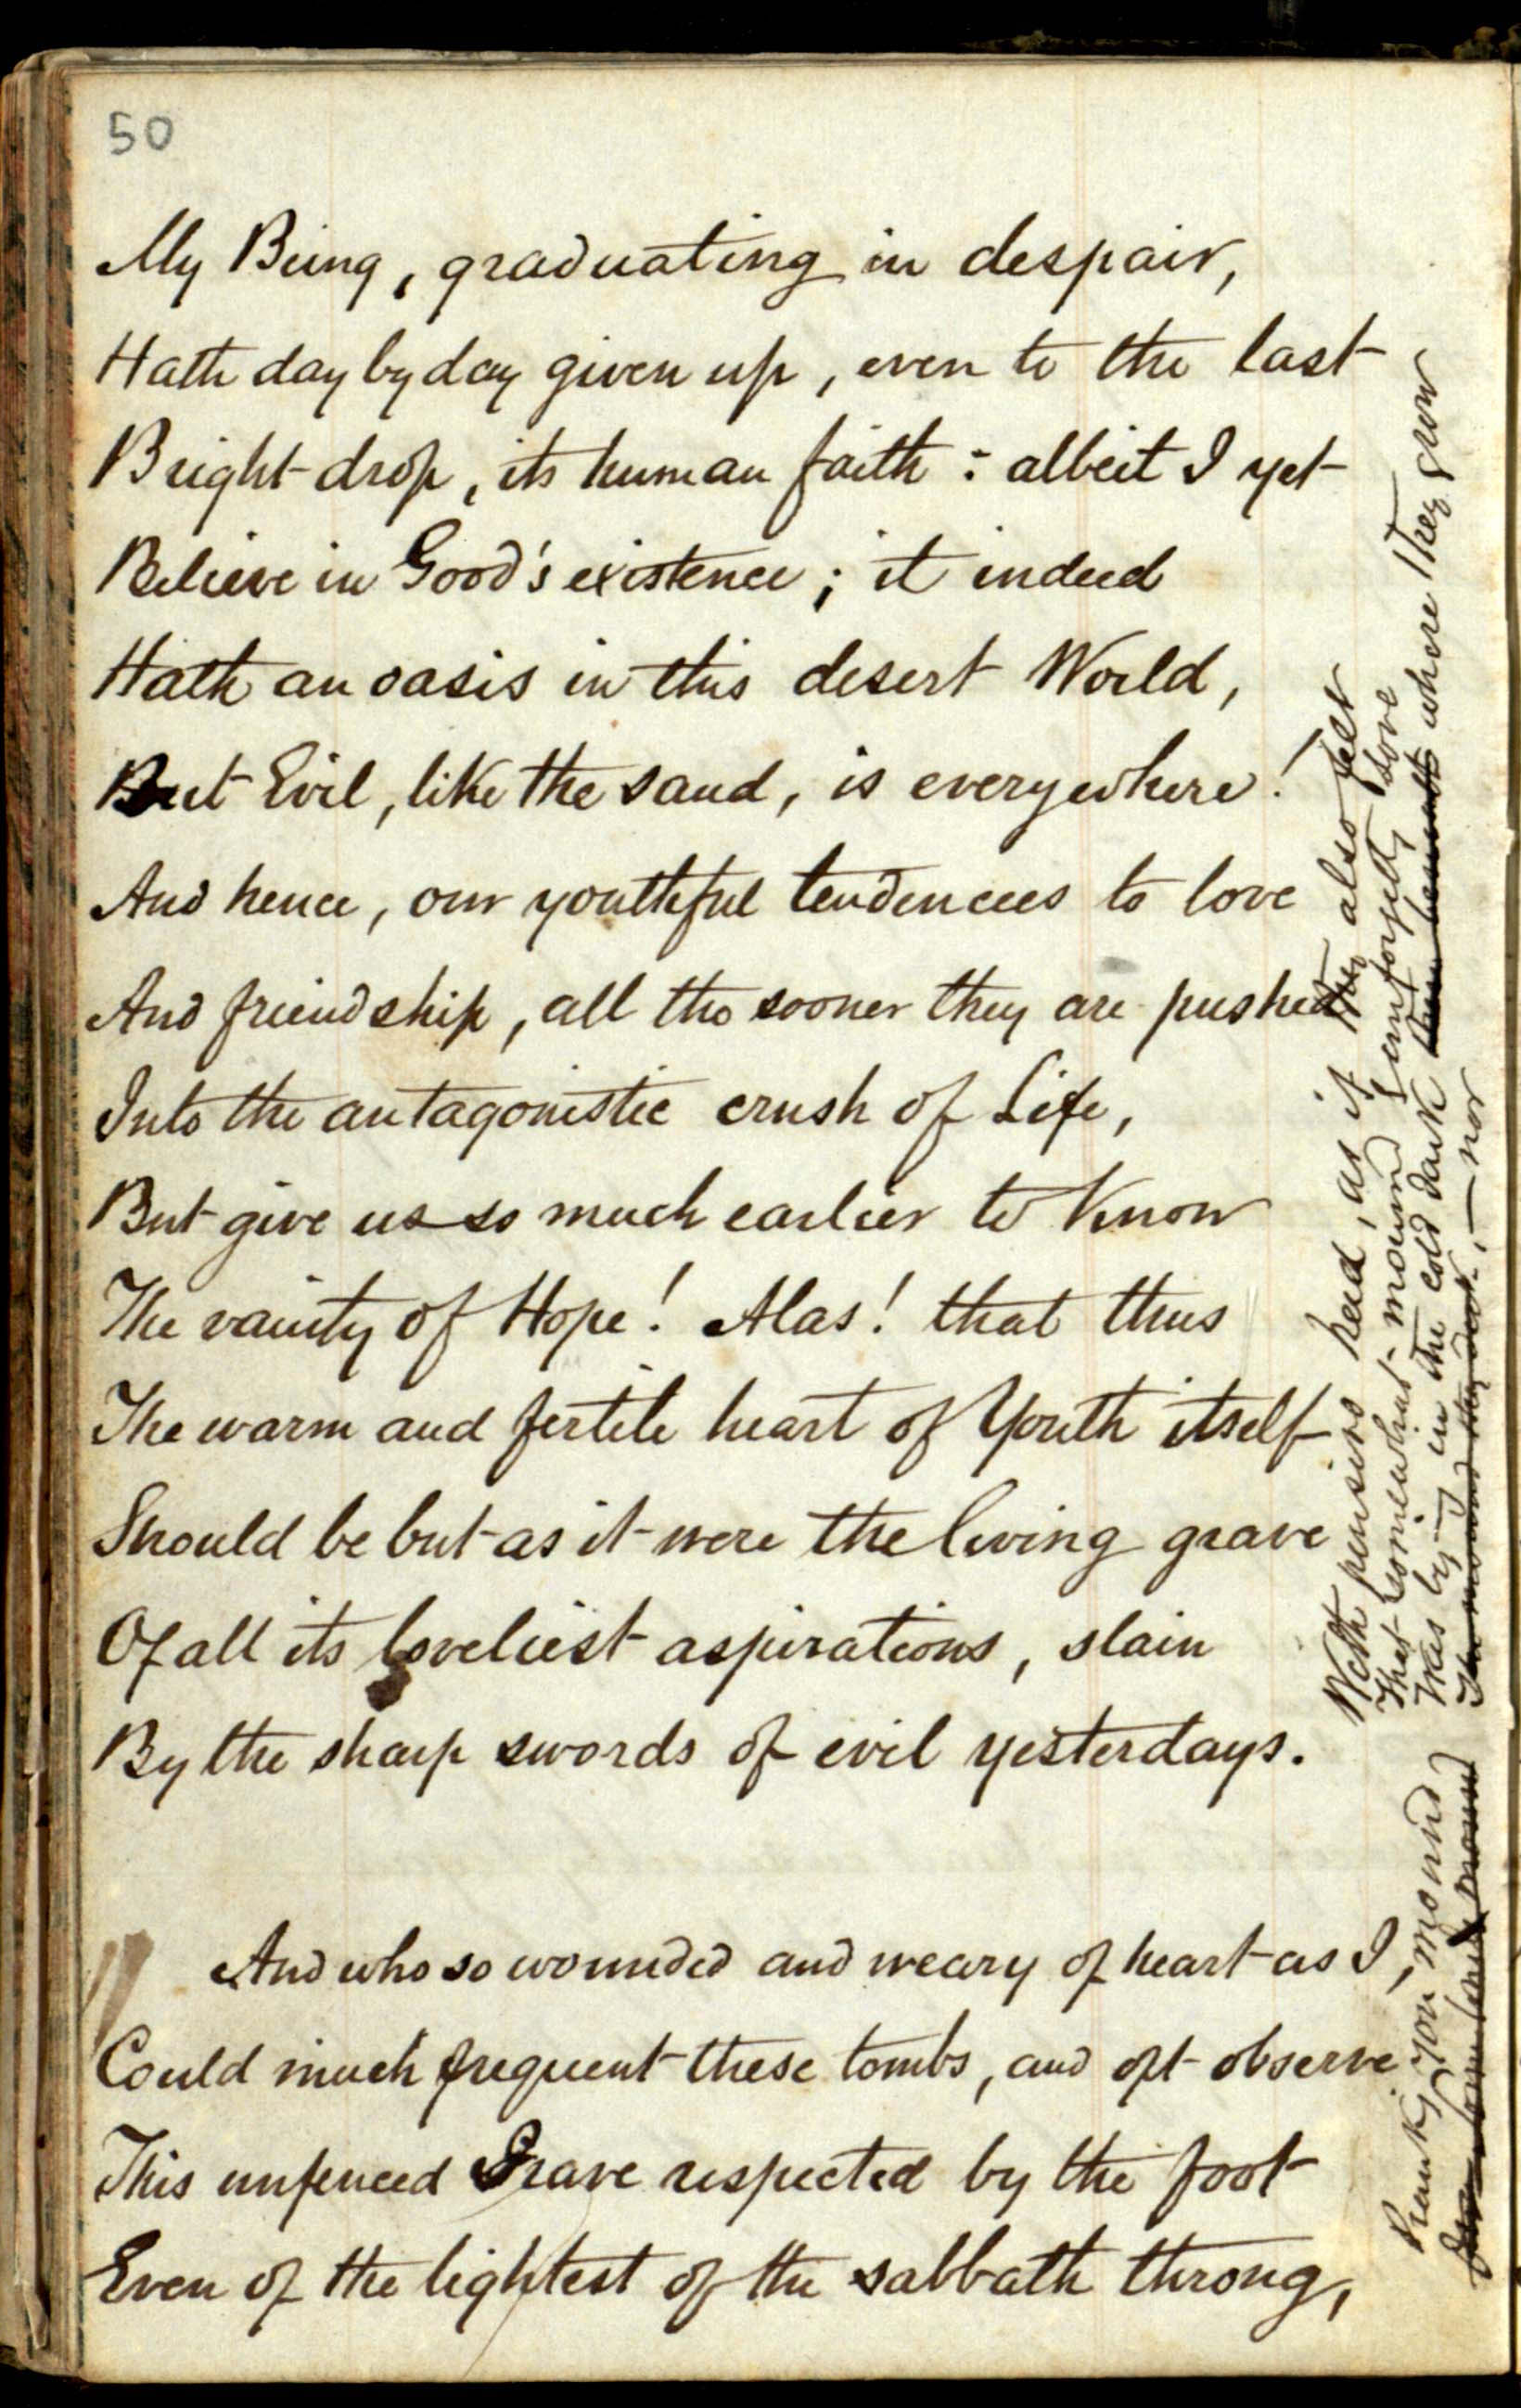 50
My Being, graduating in despair,
Hath day by day given up, even to the last
Bright drop, its human faith : albeit I yet
Believe in Good's existence ; it indeed
Hath an oasis in this desert World,
But Evil, like the sand, is everywhere !
And hence, our youthful tendencies to love
And friendship, all the sooner they are pushed
Into the antagonistic crush of Life,
But give us so much earlier to know
The vanity of Hope ! Alas ! that thus
The warm and fertile heart of Youth itself
Should be but as it were the living grave
Of all its loveliest aspirations, slain
By the sharp swords of evil yesterdays.
And who so wounded and weary of heart as I,
Could much frequent these tombs, and oft observe
This unfenced Grave respected by the foot
Even of the lightest of the sabbath throng,
With pensive head, as if they also felt
That somewhat mound love
Was by in the cold dark where they grow
— nor
yon mound